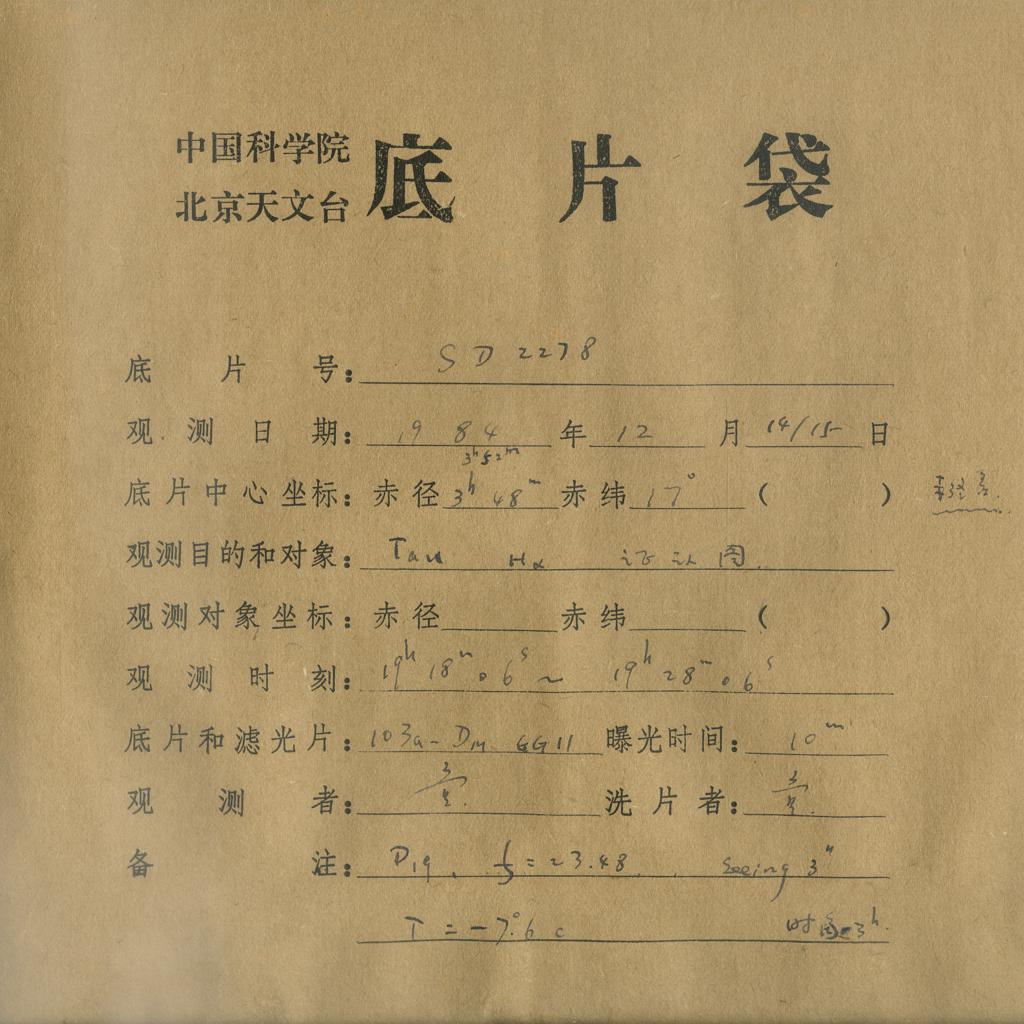 中国科学院
北京天文台 底片袋
底片号: SD 2278
观测日期: 1984年12月14/15日
3ʰ52ᵐ
底片中心坐标: 赤径 3ʰ48ᵐ 赤纬 17° ( )
观测目的和对象: Tau Hα 证认图.
观测对象坐标: 赤径 赤纬 ( )
观测时刻: 19ʰ18ᵐ06ˢ ~ 19ʰ28ᵐ06ˢ
底片和滤光片: 103a-D GG11 曝光时间: 10ᵐ
观测者: 洗片者:
备注: =23.48. seeing 3"
T=-7.°6 c 时角 3ʰ.